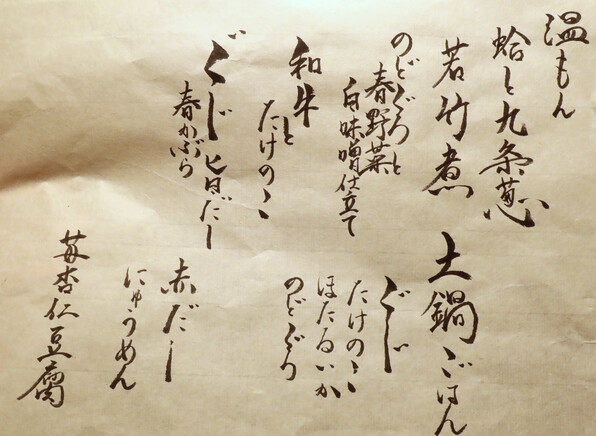 温もん
蛤と九条葱
若竹煮
のどぐろと
春野菜
白味噌仕立て
和牛と
たけのこ
ぐじ
春かぶら
土鍋ごはん
ぐじ
たけのこ
ほたるいか
のどぐろ
赤だし
にゅうめん
苺杏仁豆腐